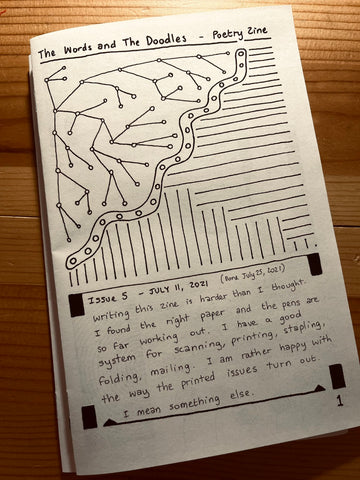 The Words and The Doodles - Poetry Zine
ISSUE 5 - JULY 11, 2021 (Done July 25, 2021)
Writing this zine is harder than I thought.
I found the right paper and the pens are
so far working out. I have a good
system for scanning, printing, stapling,
folding, mailing. I am rather happy with
the way the printed issues turn out.
I mean something else.
1